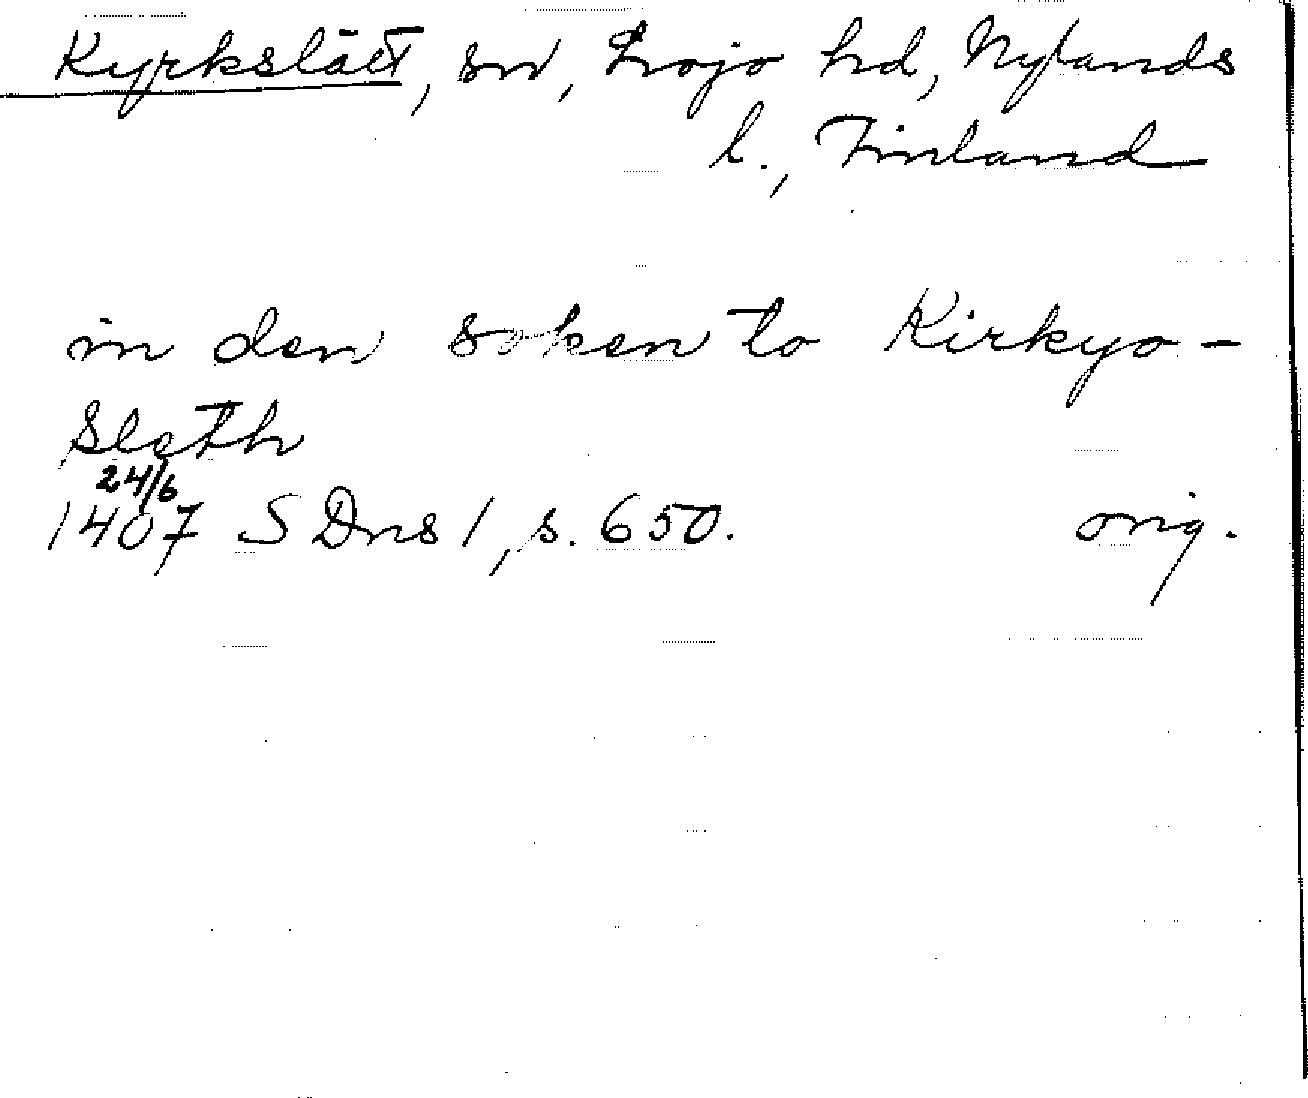 Kyrkslätt, sn, Lojo hd, Nylands
l., Finland
in den soken to Kirkyo-
sleth
24/6
1407 SDns 1, s. 650. orig.